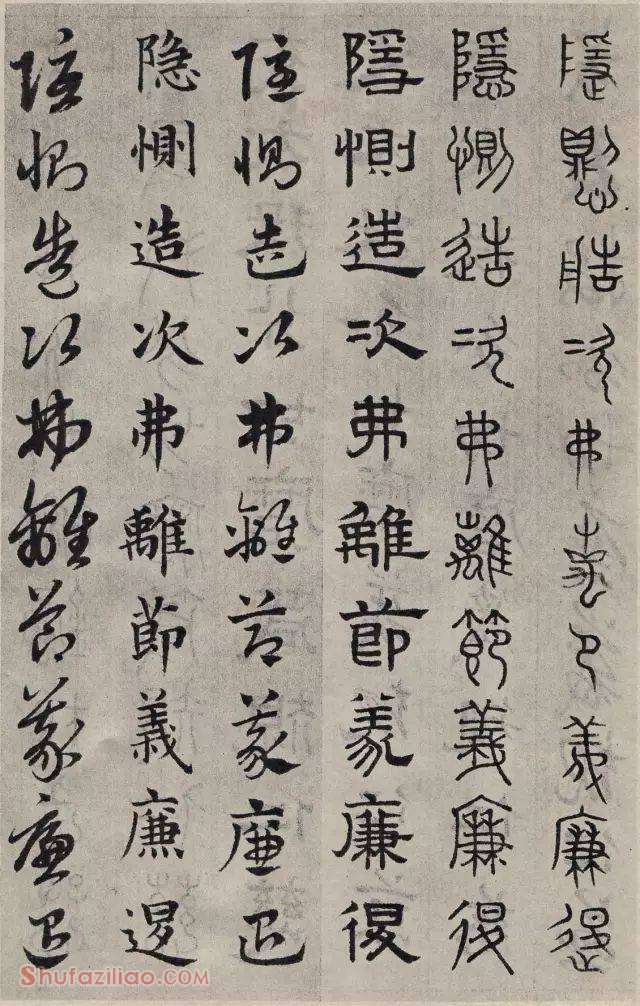 隱惻造次弗離節義廉退
隱惻造次弗離節義廉退
隱惻造次弗離節義廉退
隱惻造次弗離節義廉退
隐惻造次弗離節義廉退
隱惻造次弗離節義廉退
Shufaziliao.COM